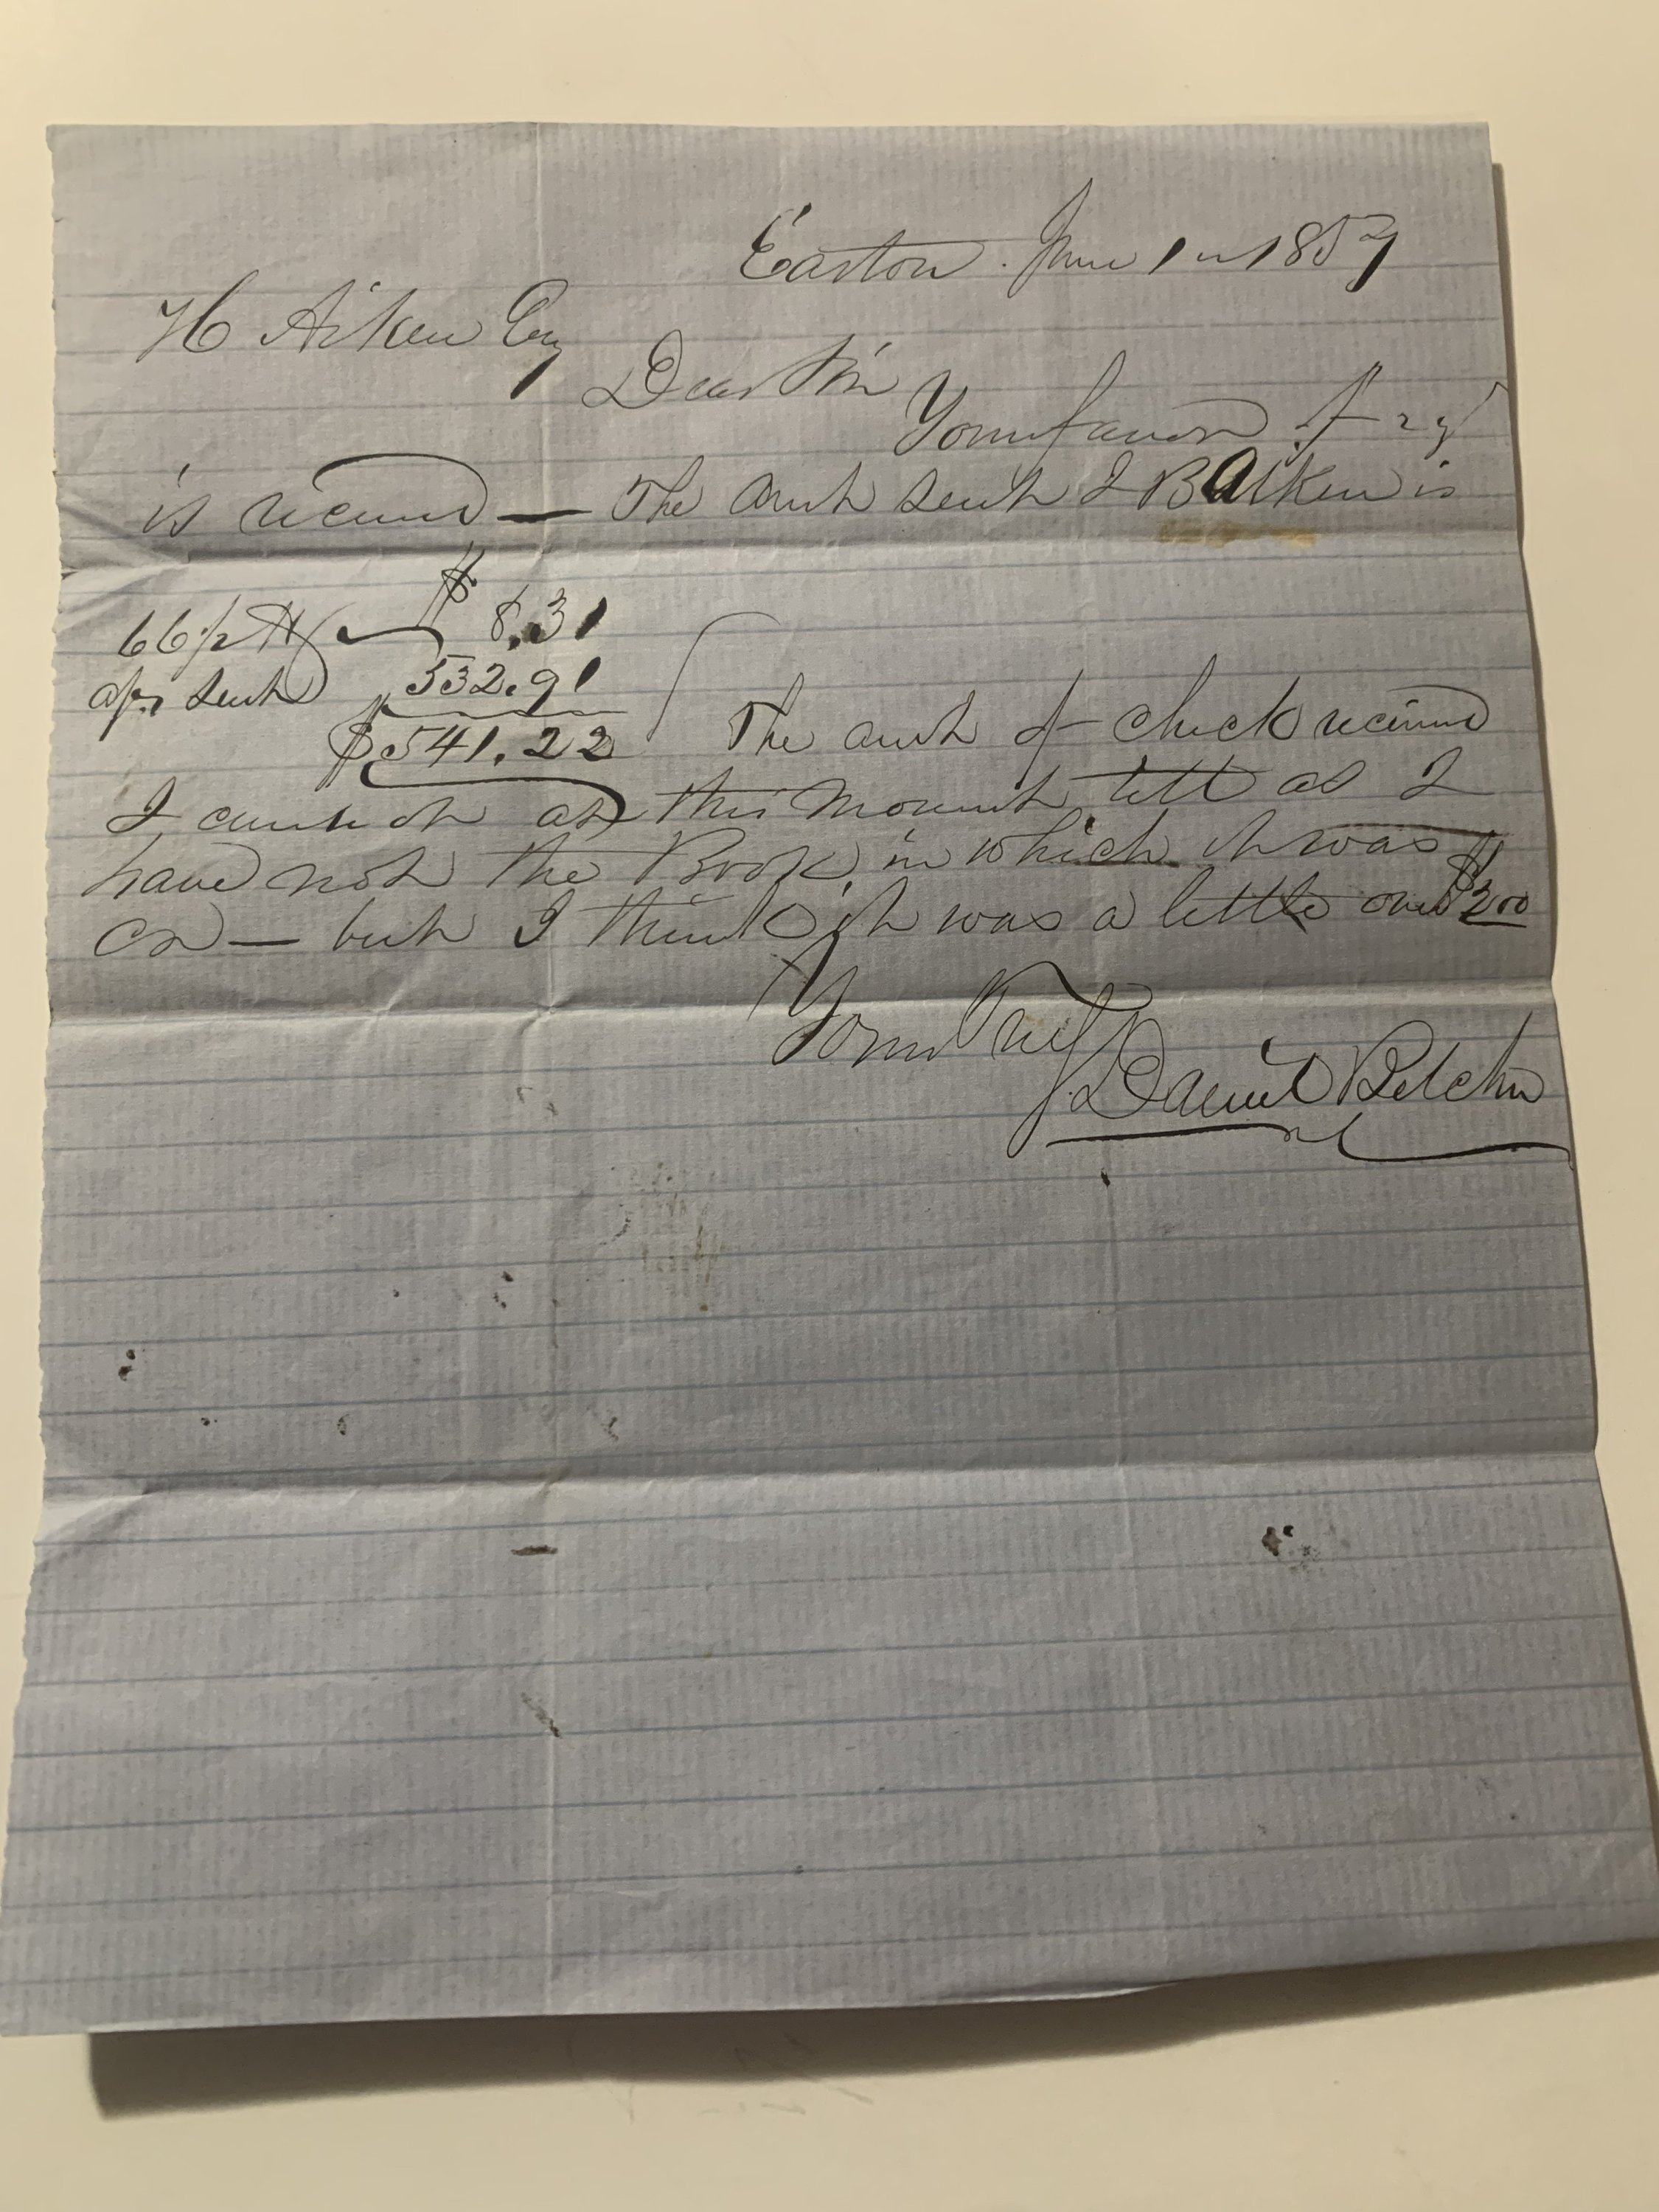 Easton June 1 1857
H Aiken Esq
Dear Sir
Your favor of 29
is received — The amt sent J B Aiken is
66 1/2 $ 8.31
sent 532.91
$541.22 The amt of check received
I cannot at this moment tell as I
have not the Book in which it was
on — but I think it was a little over $200
Yours Truly
Daniel Belcher